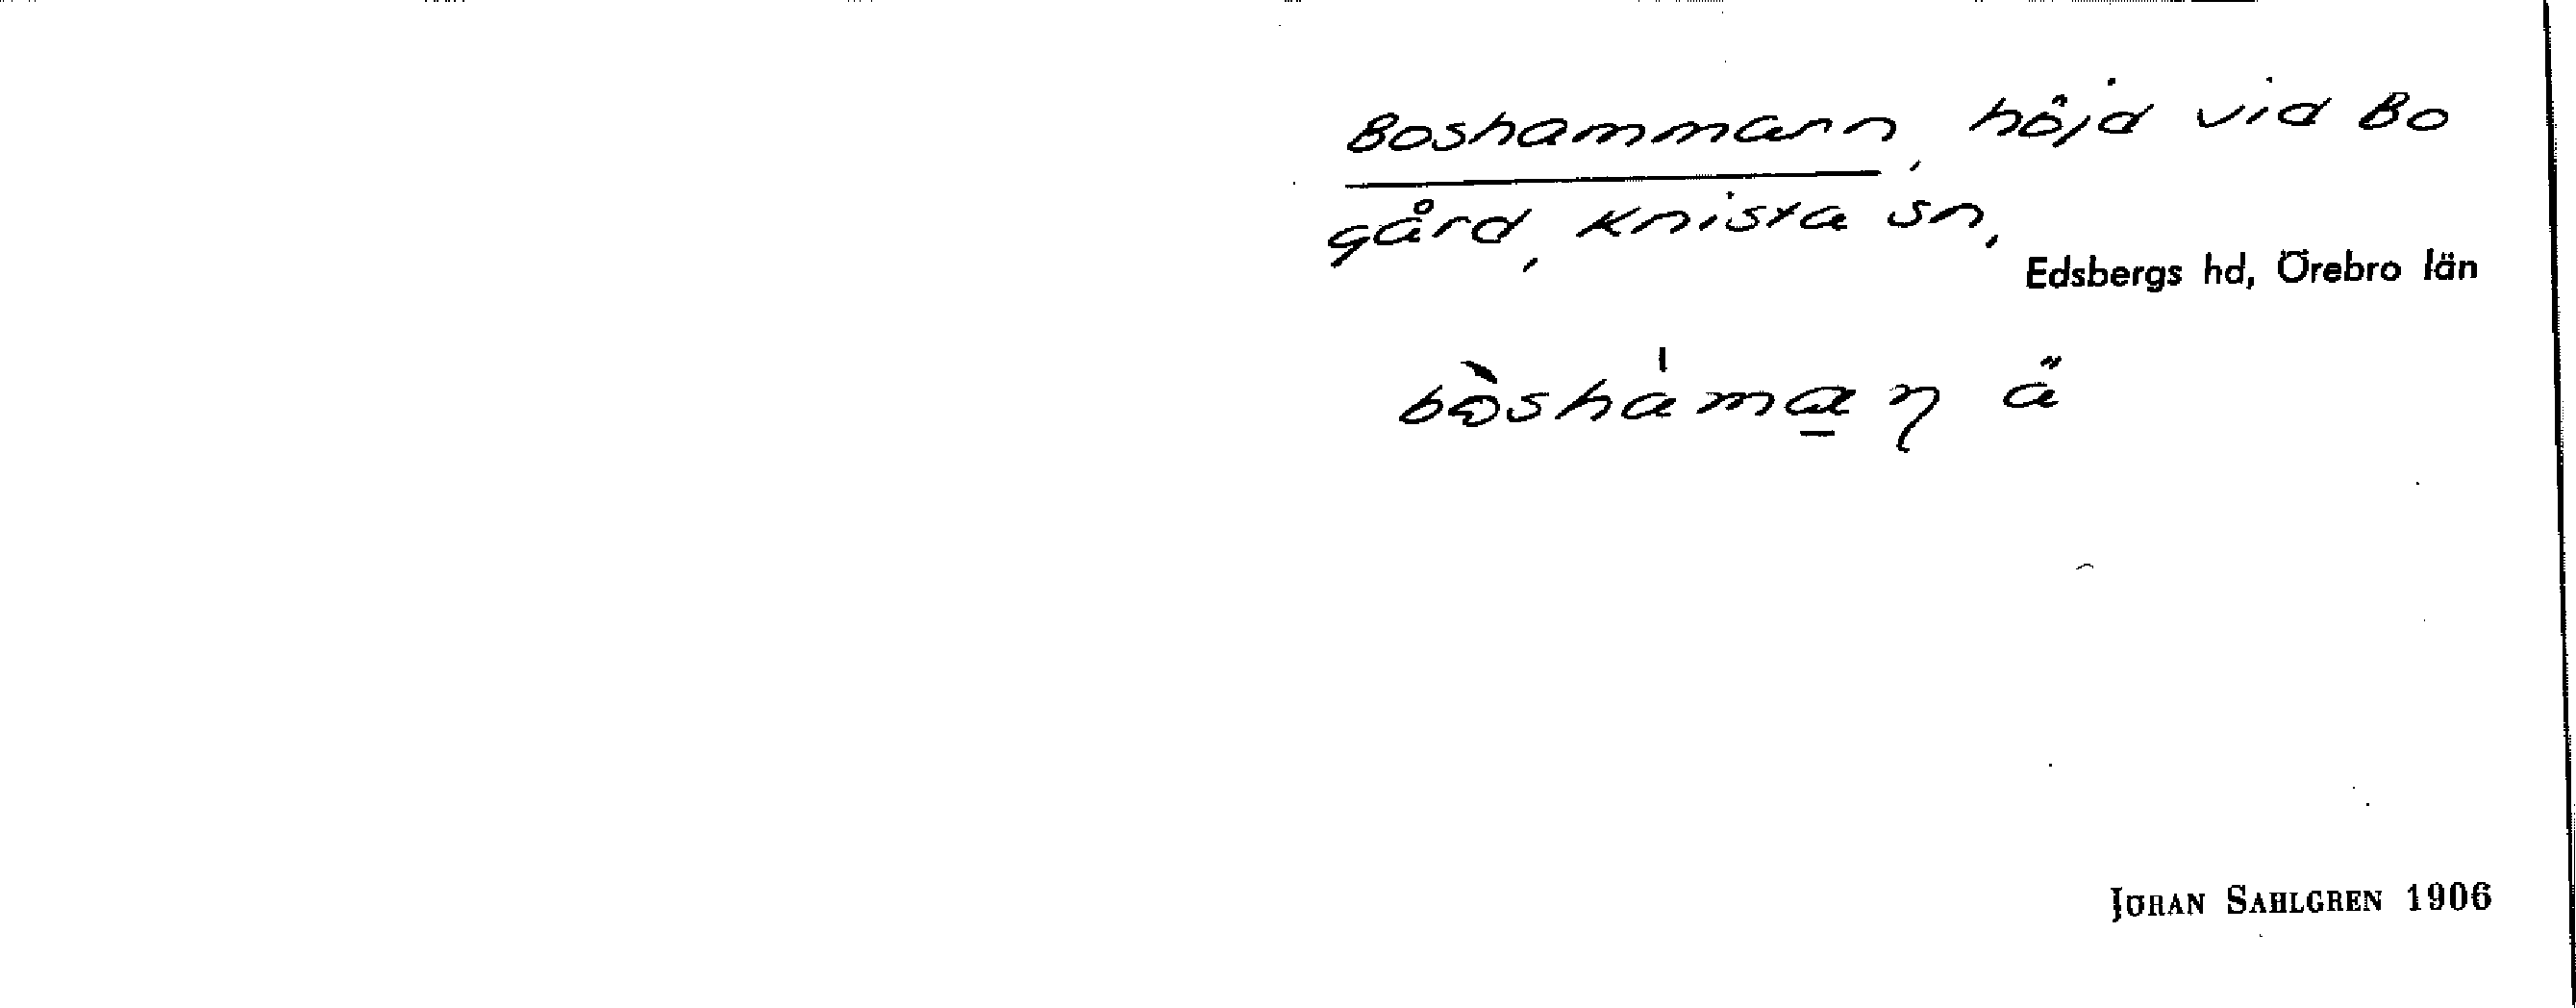 Boshammarn, höjd vid Bo
gård, Knista sn,
Edsbergs hd, Örebro län
bòshàmaη ä
JÖRAN SAHLGREN 1906